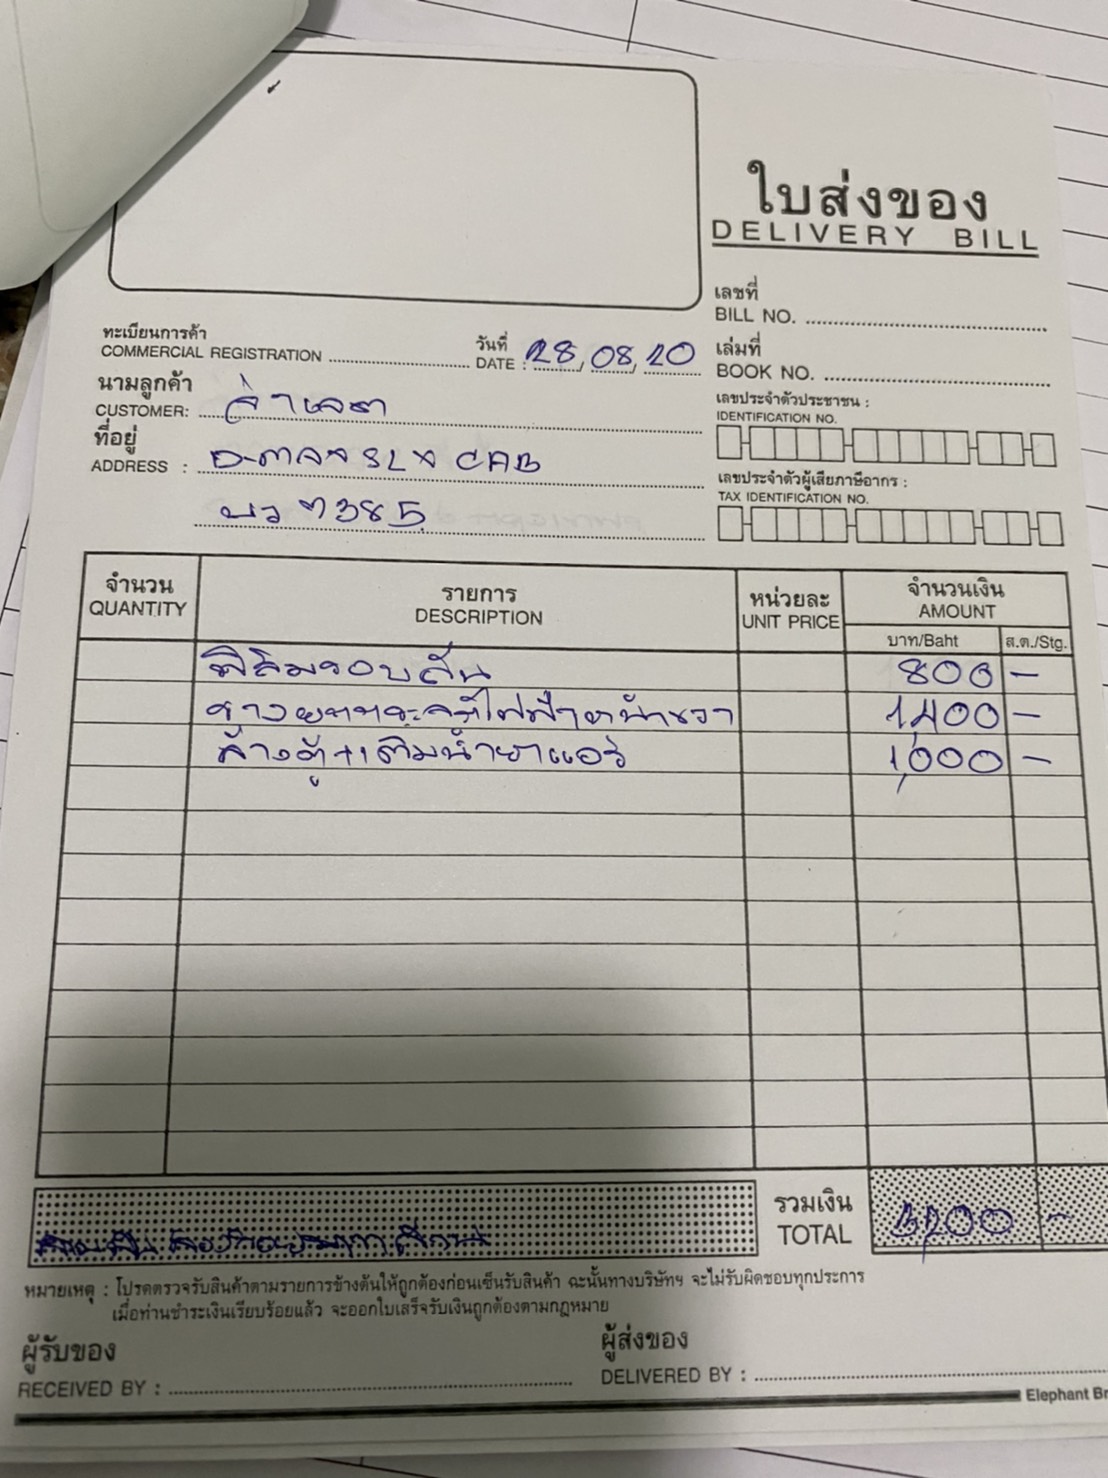 ใบส่งของ
DELIVERY BILL
เลขที่
BILL NO.
ทะเบียนการค้า
COMMERCIAL REGISTRATION
วันที่
DATE : 28/08/20
เล่มที่
BOOK NO.
นามลูกค้า
CUSTOMER:
เลขประจำตัวประชาชน :
IDENTIFICATION NO.
ที่อยู่
ADDRESS : CAB
เลขประจำตัวผู้เสียภาษีอากร :
TAX IDENTIFICATION NO.
บว 7385
จำนวน รายการ หน่วยละ จำนวนเงิน
QUANTITY DESCRIPTION UNIT PRICE AMOUNT
บาท/Baht ส.ต./Stg.
ฟิล์มรอบคัน 800 -
1,400 -
ล้างตู้+เติมน้ำยาแอร์ 1,000 -
รวมเงิน
TOTAL 3,200 -
หมายเหตุ : โปรดตรวจรับสินค้าตามรายการข้างต้นให้ถูกต้องก่อนเซ็นรับสินค้า ฉะนั้นทางบริษัทฯ จะไม่รับผิดชอบทุกประการ
เมื่อท่านชำระเงินเรียบร้อยแล้ว จะออกใบเสร็จรับเงินถูกต้องตามกฎหมาย
ผู้รับของ
RECEIVED BY :
ผู้ส่งของ
DELIVERED BY :
Elephant Br